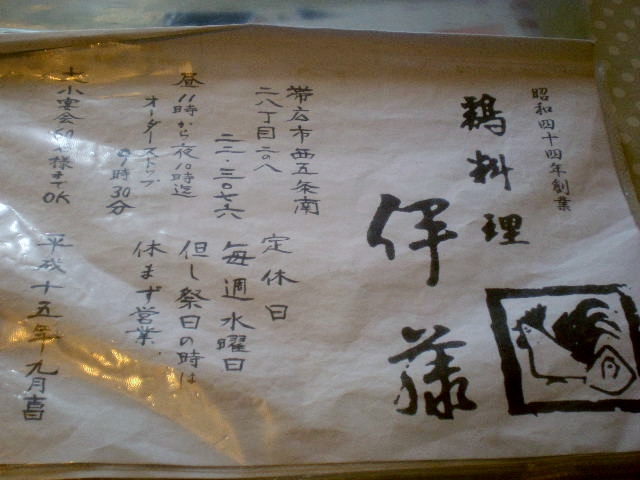 昭和四十四年創業
鶏料理
伊藤
帯広市西五条南
二八丁目二の八
二二・三〇七六
定休日
毎週水曜日
但し祭日の時は
休まず営業
昼11時から夜10時迄
オーダーストップ
9時30分
大小宴会60名様までOK
平成十五年九月吉日